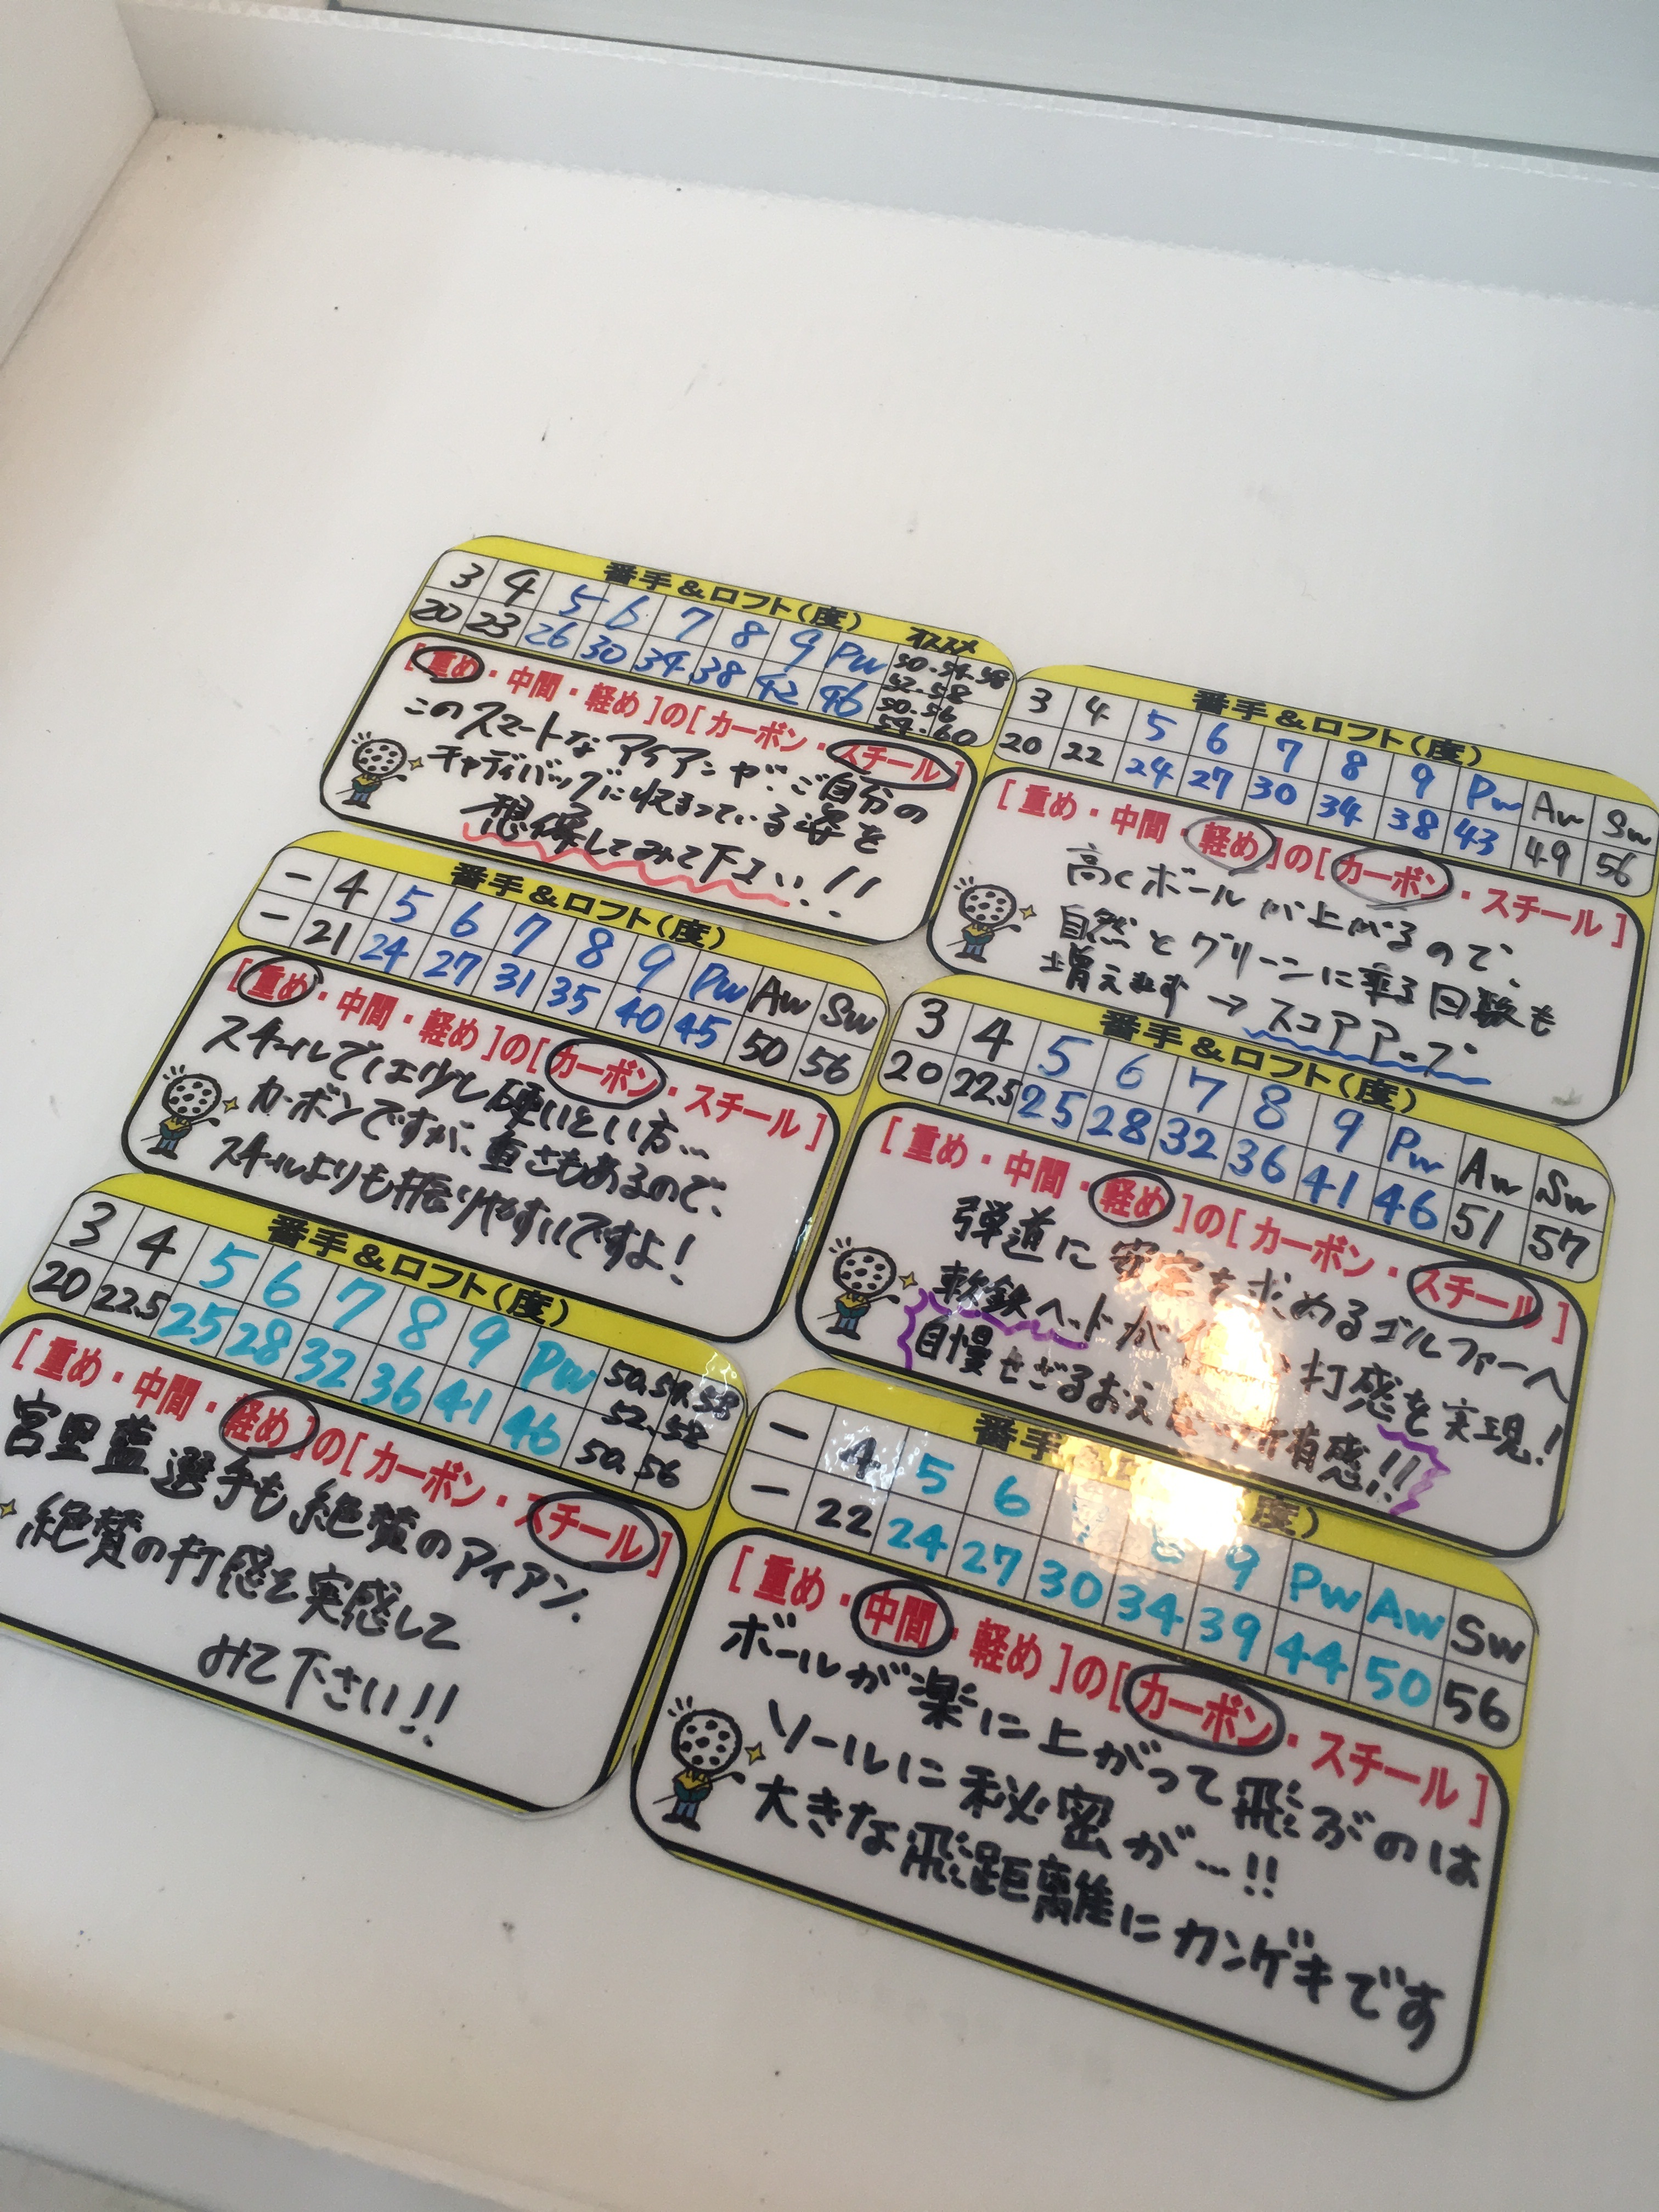 番手&ロフト(度)
3 4 5 6 7 8 9 PW オススメ
20 23 26 30 34 38 42 46 50・54・58
52・58
50・56
54・60
[重め・中間・軽め]の[カーボン・スチール]
このスマートなアイアンが、ご自分の
キャディバッグに収まっている姿を
想像してみて下さい!!
番手&ロフト(度)
3 4 5 6 7 8 9 PW AW SW
20 22 24 27 30 34 38 43 49 56
[重め・中間・軽め]の[カーボン・スチール]
高くボールが上がるので、
自然とグリーンに乗る回数も
増えます→スコアアップ
番手&ロフト(度)
- 4 5 6 7 8 9 PW AW SW
- 21 24 27 31 35 40 45 50 56
[重め・中間・軽め]の[カーボン・スチール]
スチールでは少し硬いという方…
カーボンですが、重さもあるので、
スチールよりも振りやすいですよ!
番手&ロフト(度)
3 4 5 6 7 8 9 PW AW SW
20 22.5 25 28 32 36 41 46 51 57
[重め・中間・軽め]の[カーボン・スチール]
弾道に安定を求めるゴルファーへ
軟鉄ヘッドが 打感を実現!
自慢せざるおえ 所有感!!
番手&ロフト(度)
3 4 5 6 7 8 9 PW 50.54.58
20 22.5 25 28 32 36 41 46 52.58
50.56
[重め・中間・軽め]の[カーボン・スチール]
宮里藍選手も絶賛のアイアン.
絶賛の打感を実感して
みて下さい!!
番手 度)
- 4 5 6 8 9 PW AW SW
- 22 24 27 30 34 39 44 50 56
[重め・中間・軽め]の[カーボン・スチール]
ボールが楽に上がって飛ぶのは
ソールに秘密が…!!
大きな飛距離にカンゲキです